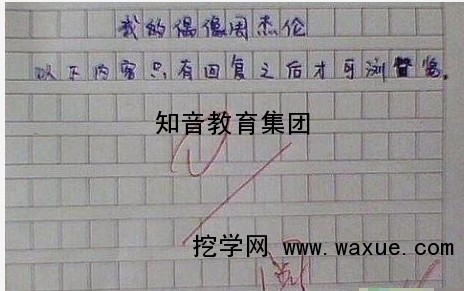 我的偶像周杰伦
以下内容只有回复之后才可浏览。
知音教育集团
挖学网 www.waxue.com